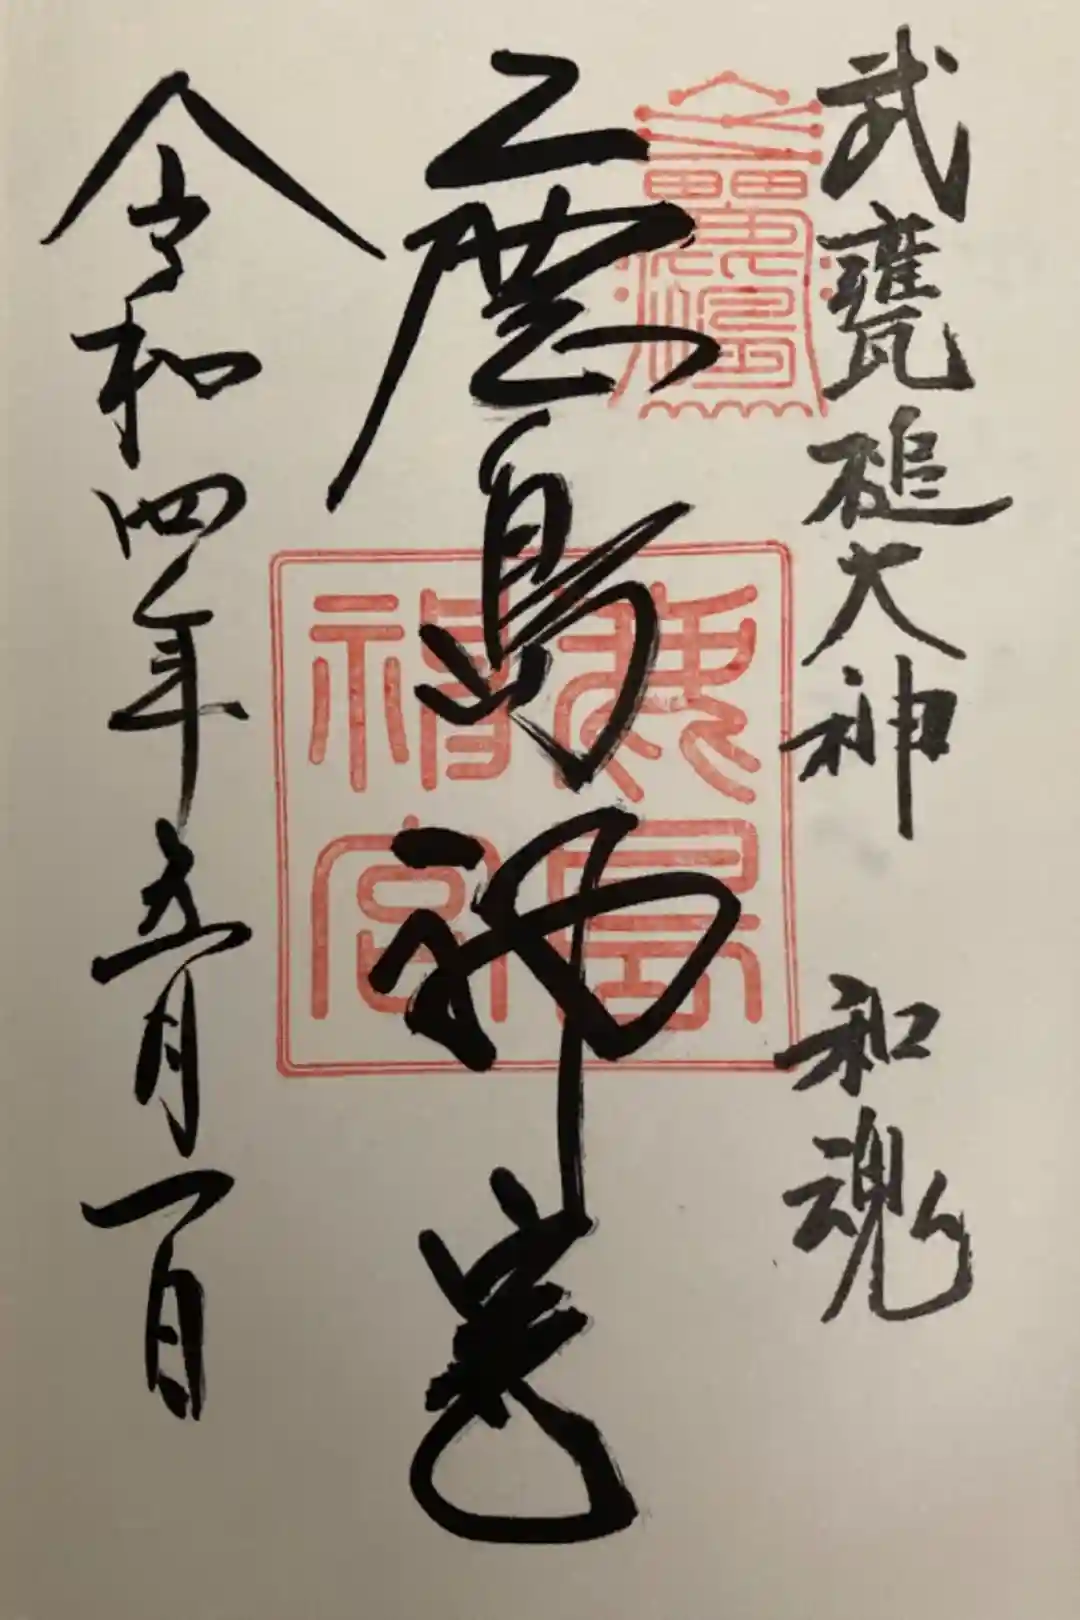 武甕槌大神 和魂
鹿島神宮
令和四年五月一日